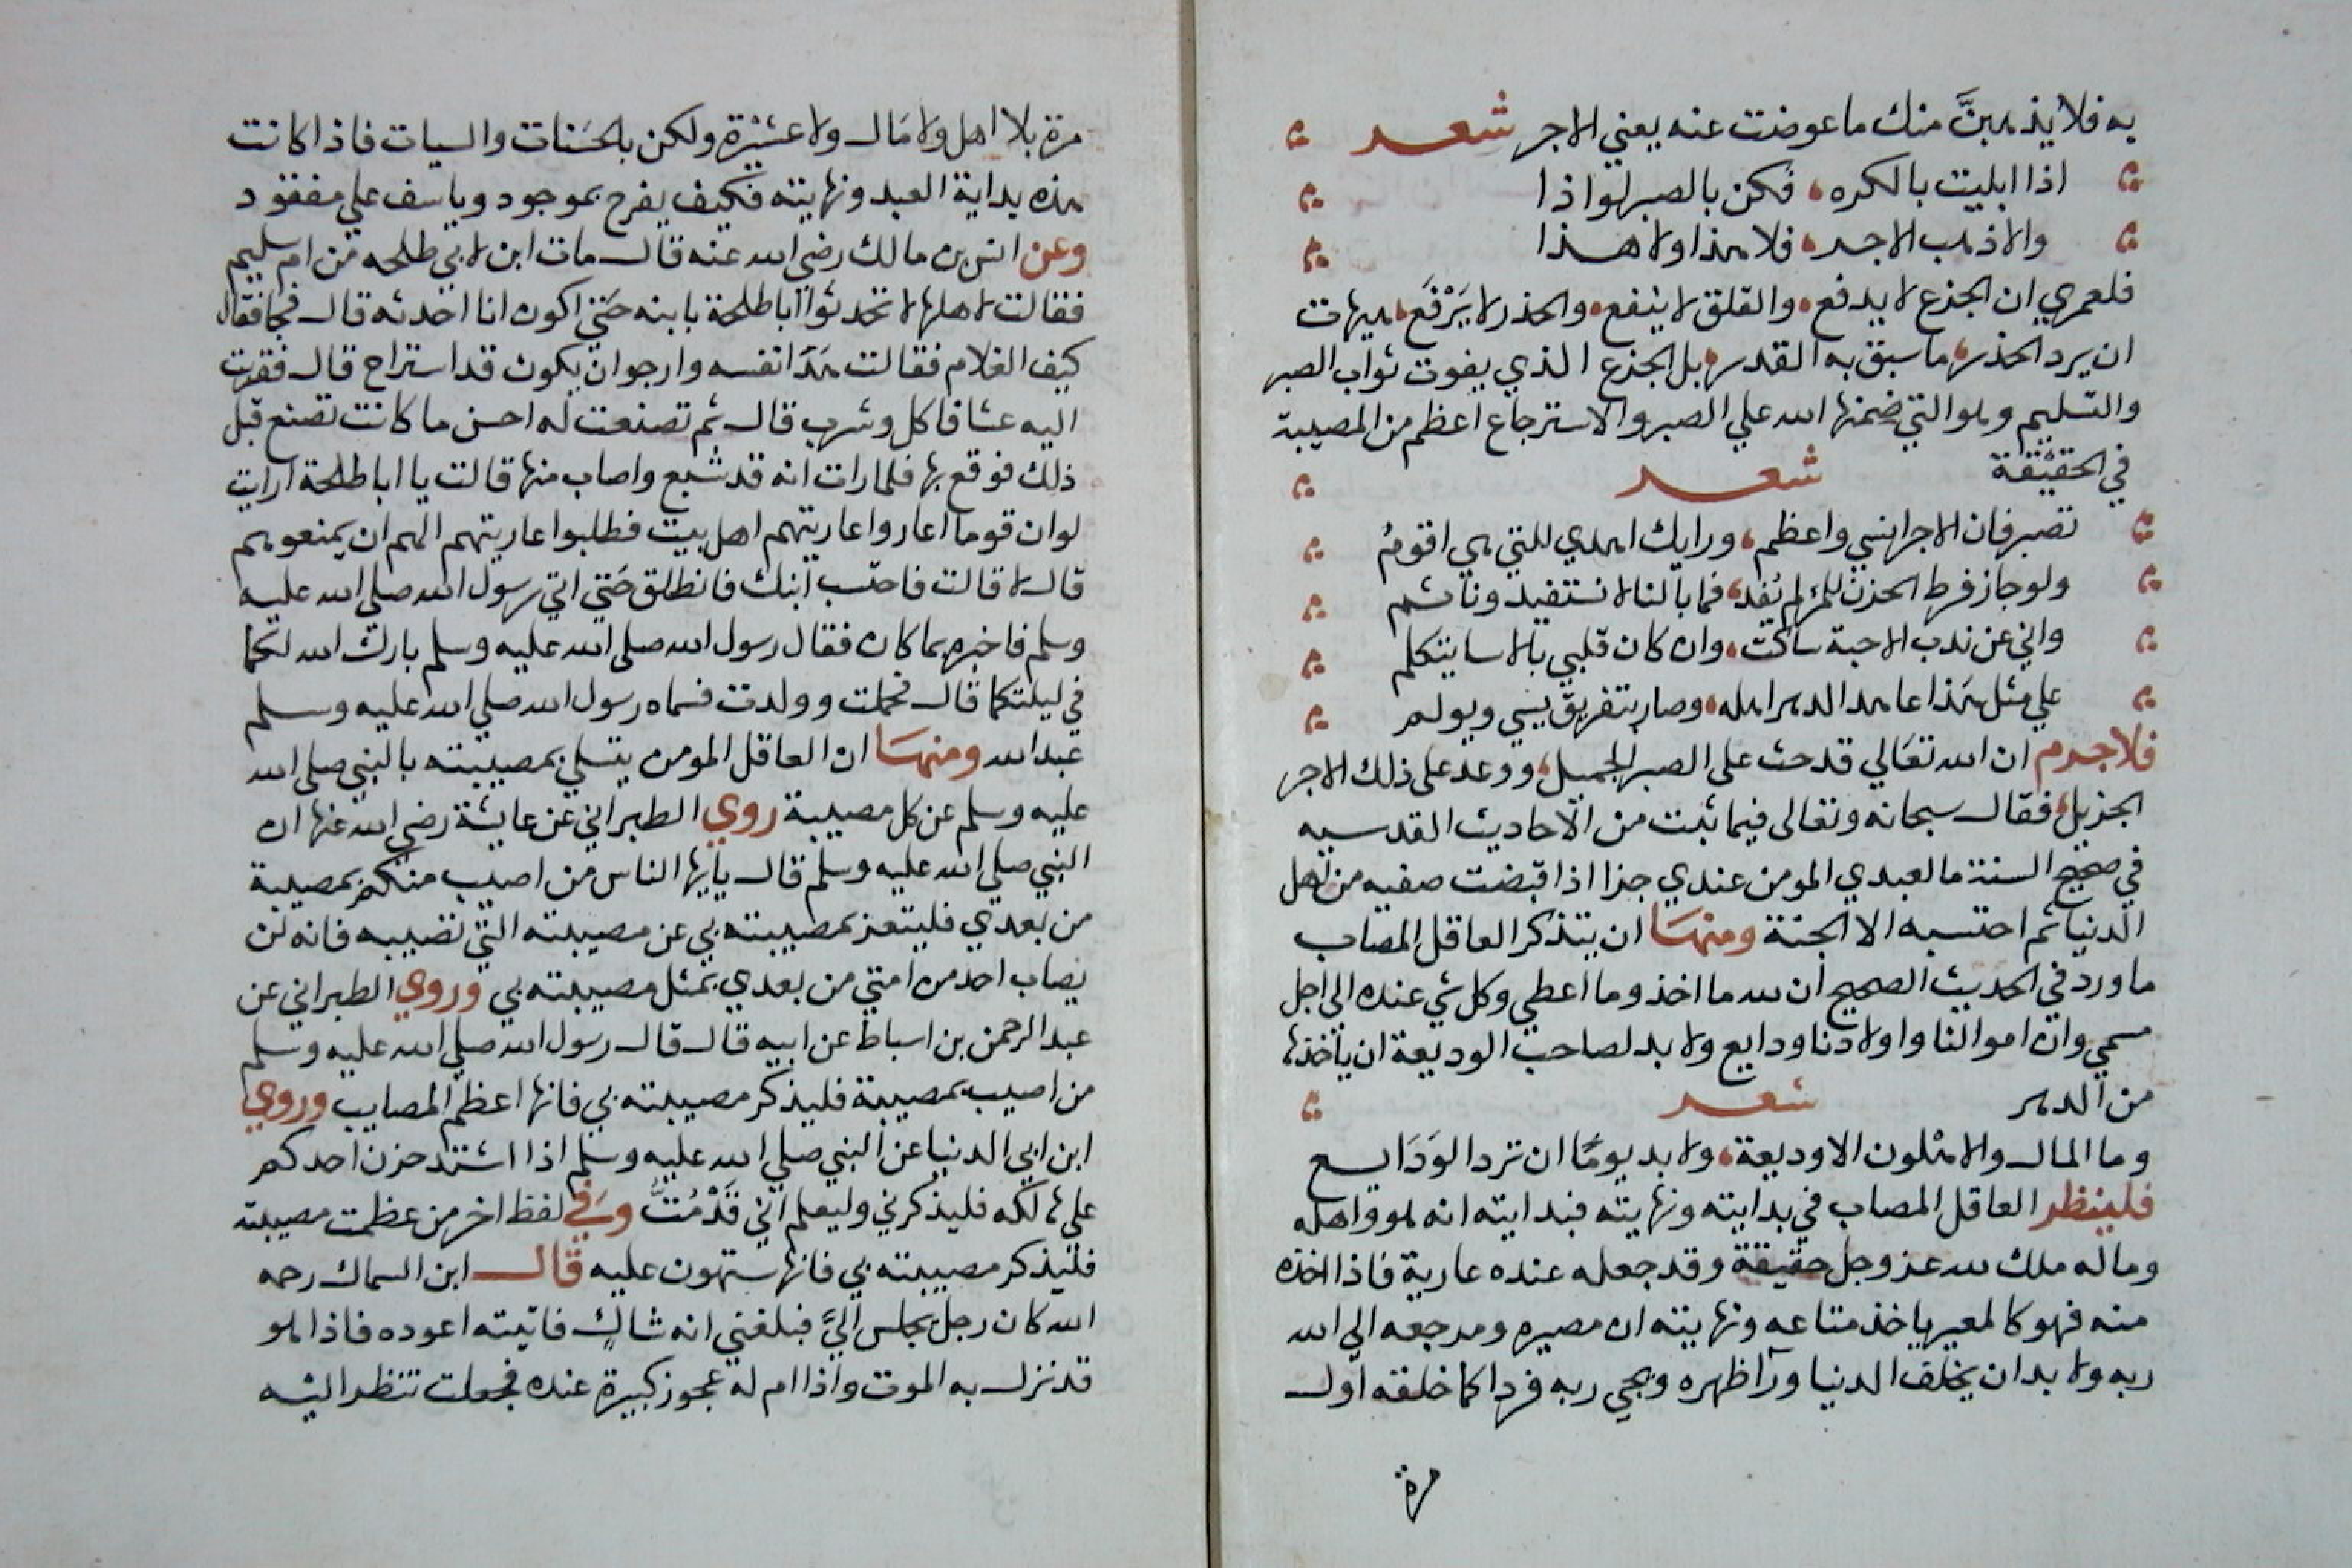 به فلا يذهبنَّ منك ما عوضت عنه يعني الاجر شعر
اذا ابليت بالكره فكن بالصبر لواذا
والا ذهب الاجر فلا هذا ولا هذا
فلعمري ان الجذع لا يدفع والقلق لا ينفع والحذر لا يَرْفَع هيهات
ان يرد الحذر ما سبق به القدر بل الجذع الذي يفوت ثواب الصبر
والتسليم وهو التي ضمنها الله علي الصبر والاسترجاع اعظم من المصيبة
في الحقيقة شعر
تصبر فان الاجر اسني واعظم ورايك اهدي للتي هي اقومُ
ولو جاز فرط الحزن للمرء لم يُفد فما بالنا لا نستفيد وناثم
واني عن ندب الاحبة ساكت وان كان قلبي بالاسا يتكلم
علي مثل هَذا عاهد الدهر اهله وصار بتفريق يسي ويولم
فلا جرم ان الله تعَالي قد حث على الصبر الجميل ووعد على ذلك الاجر
الجزيل فقال سبحانه وتعالى فيما ثبت من الاحاديث القدسيه
في صحيح السنة ما لعبدي المومن عندي جزا اذا قبضت صفيه من اهل
الدنيا ثم احتسبه الا الجنة ومنهَا ان يتذكر العاقل المصاب
ما ورد في الحديث الصحيح ان لله ما اخذ وما اعطي وكل شي عنده الى اجل
مسمي وان اموالنا واولادنا ودايع ولا بد لصاحب الوديعة ان ياخذها
من الدهر شعر
وما المال والاهلون الا وديعة ولا بد يومًا ان ترد الوَدَايع
فلينظر العاقل المصاب في بدايته ونهايته فبدايته انه هو واهله
وماله ملك لله عز وجل حقيقة وقد جعله عنده عارية فاذا اخذه
منه فهو كالمعير ياخذ متاعه ونهايته ان مصيره ومرجعه الي الله
ربه ولا بد ان يخلف الدنيا ورآ ظهره ويجي ربه فردا كما خلقه اول
مرة
مرة بلا اهل ولا مَال ولا عشيْرة ولكن بالحسَنات والسيات فاذا كانت
هذه بداية العبد ونهايته فكيف يفرح بموجود وياسف علي مفقود
وعن انس بن مالك رضي الله عنه قال مات ابن لابي طلحه من ام سليم
فقالت لاهلها لا تحدثوا ابا طلحة بابنه حَتي اكون انا احدثه قال فجا فقال
كيف الغلام فقالت هَدَا نفسه وارجوا ان يكون قد استراح قال فقربت
اليه عشا فاكل وشرب قال ثم تصنعت له احسن ما كانت تصنع قبل
ذلك فوقع بها فلما رات انه قد شبع واصاب منها قالت يا ابا طلحة ارايت
لو ان قوما اعاروا عاريتهم اهل بيت فطلبوا عاريتهم الهم ان يمنعوهم
قال لا قالت فاحتسب ابنك فانطلق حَتي اتي رسول الله صلي الله عليه
وسلم فاخبره بما كان فقال رسول الله صلى الله عليه وسلم بارك الله لكما
في ليلتكما قال فحملت وولدت فسماه رسول الله صلي الله عليه وسلم
عبد الله ومنهَا ان العاقل المومن يتسلي بمصيبته بالنبي صلى الله
عليه وسلم عن كل مصيبة روي الطبراني عن عايشة رضي الله عنها ان
النبي صلي الله عليه وسلم قال يايها الناس من اصيب منكم بمصيبة
من بعدي فليتعز بمصيبته بي عن مصيبته التي تصيبه فانه لن
يصاب احد من امتي من بعدي بمثل مصيبته بي وروي الطبراني عن
عبد الرحمن بن اسباط عن ابيه قال قال رسول الله صلي الله عليه وسلم
من اصيب بمصيبة فليذكر مصيبته بي فانها اعظم المصايب وروي
ابن ابي الدنيا عن النبي صلي الله عليه وسلم اذا اشتد حزن احدكم
علي هالكه فليذكرني وليعلم اني قَدْ مُتُّ وَفي لفظ اخر من عظمت مصيبته
فليذكر مصيبته بي فانها ستهون عليه قال ابن السماك رحمه
الله كان رجل يجلس اليَّ فبلغني انه شاكٍ فاتيته اعوده فاذا هو
قد نزل به الموت واذا ام له عجوز كبيرة عنده فجعلت تنظر اليه